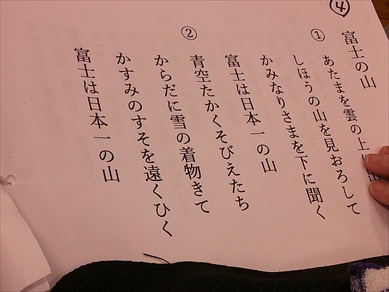 ④
富士の山
①
あたまを雲の上に
しほうの山を見おろして
かみなりさまを下に聞く
富士は日本一の山
②
青空たかくそびえたち
からだに雪の着物きて
かすみのすそを遠くひく
富士は日本一の山